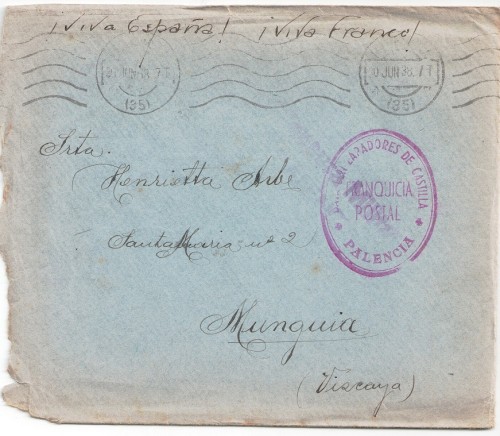 ¡Viva España! ¡Viva Franco!
JUN 38. 7
(35)
JUN 38. 7
(35)
Srta.
Henrietta Arbe
Santa Maria nº 2
Munguia
(Viscaya)
ZAPADORES DE CASTILLA
FRANQUICIA
POSTAL
PALENCIA